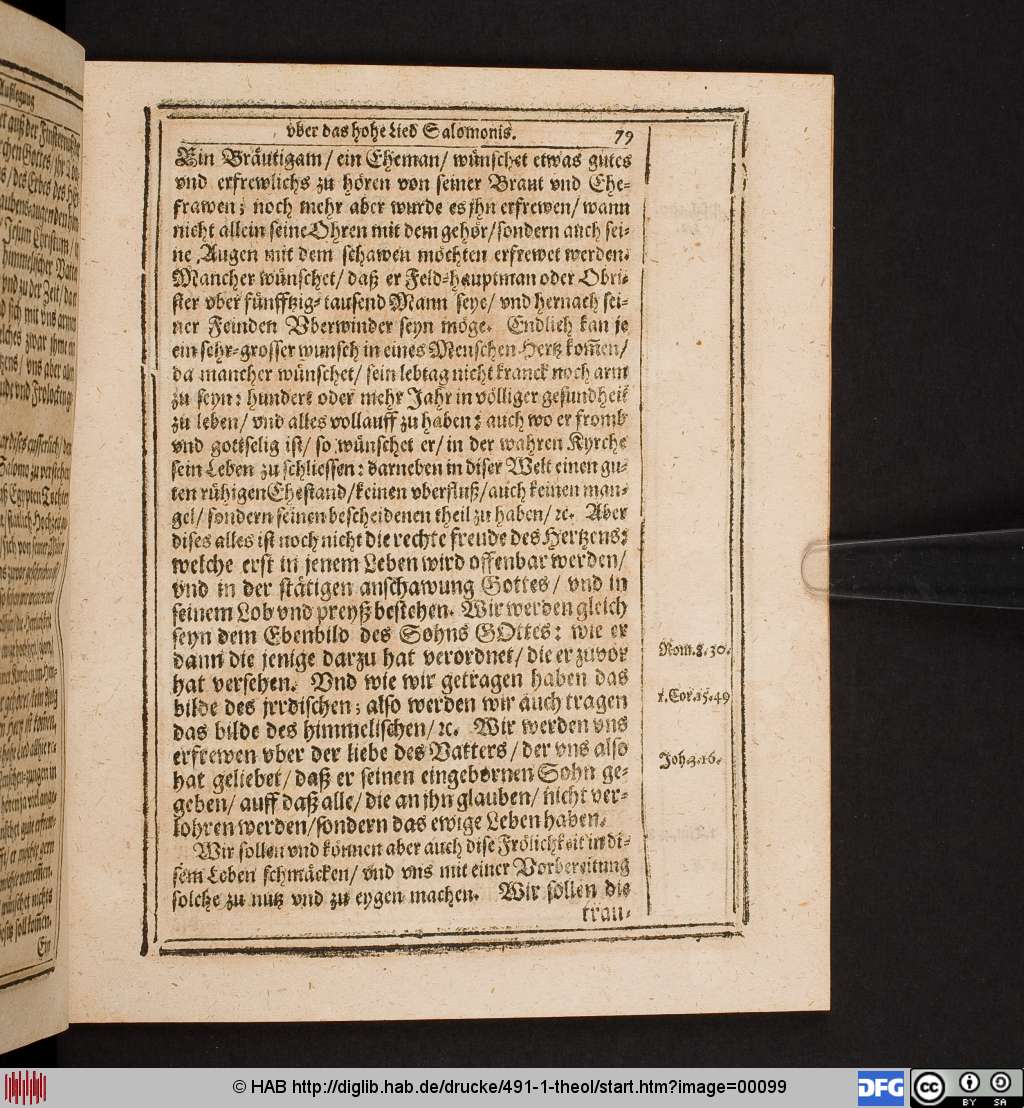 vber das hohe Lied Salomonis. 79
Ein Bräutigam/ ein Eheman/ wünschet etwas gutes
vnd erfrewlichs zu hören von seiner Braut vnd Ehe-
frawen; noch mehr aber wurde es jhn erfrewen/ wann
nicht allein seine Ohren mit dem gehör/ sondern auch sei-
ne Augen mit dem schawen möchten erfrewet werden.
Mancher wünschet/ daß er Feld-hauptman oder Obri-
ster vber fünfftzig-tausend Mann seye/ vnd hernach sei-
ner Feinden Vberwinder seyn möge. Endlich kan je
ein sehr-grosser wunsch in eines Menschen Hertz kom̃en/
da mancher wünschet/ sein lebtag nicht kranck noch arm
zu seyn: hundert oder mehr Jahr in völliger gesundheit
zu leben/ vnd alles vollauff zu haben: auch wo er fromb
vnd gottselig ist/ so wünschet er/ in der wahren Kyrche
sein Leben zu schliessen: darneben in diser Welt einen gu-
ten rühigen Ehestand/ keinen vberfluß/ auch keinen man-
gel/ sondern seinen bescheidenen theil zu haben/ ꝛc. Aber
dises alles ist noch nicht die rechte freude des Hertzens:
welche erst in jenem Leben wird offenbar werden/
vnd in der stätigen anschawung Gottes/ vnd in
seinem Lob vnd preyß bestehen. Wir werden gleich
seyn dem Ebenbild des Sohns GOttes: wie er
dann die jenige darzu hat verordnet/ die er zuvor
hat versehen. Vnd wie wir getragen haben das
bilde des jrrdischen; also werden wir auch tragen
das bilde des himmelischen/ ꝛc. Wir werden vns
erfrewen vber der liebe des Vatters/ der vns also
hat geliebet/ daß er seinen eingebornen Sohn ge-
geben/ auff daß alle/ die an jhn glauben/ nicht ver-
lohren werden/ sondern das ewige Leben haben.
Wir sollen vnd können aber auch dise Frölichkeit in di-
sem Leben schmäcken/ vnd vns mit einer Vorbereitung
solche zu nutz vnd zu eygen machen. Wir sollen die
trau-
Rom. 8. 30.
1. Cor. 15. 49
Joh. 3. 16.
© HAB http://diglib.hab.de/drucke/491-1-theol/start.htm?image=00099
DFG
cc BY SA